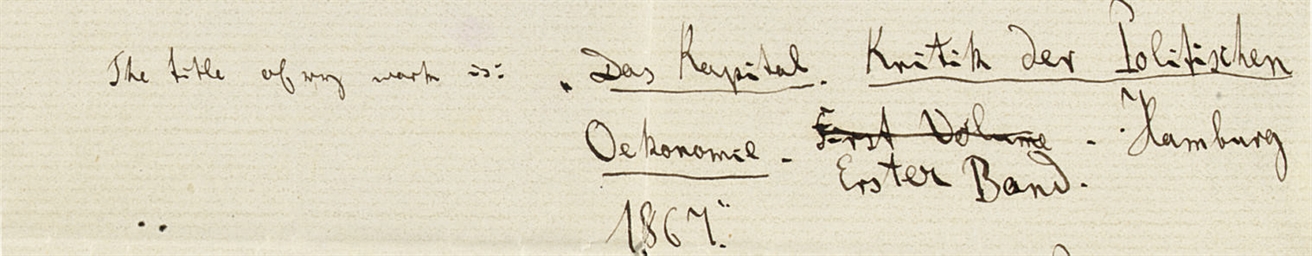 The title of my work is: „Das Kapital. Kritik der Politischen
Oekonomie – First Volume – Hamburg
Erster Band.
1867."